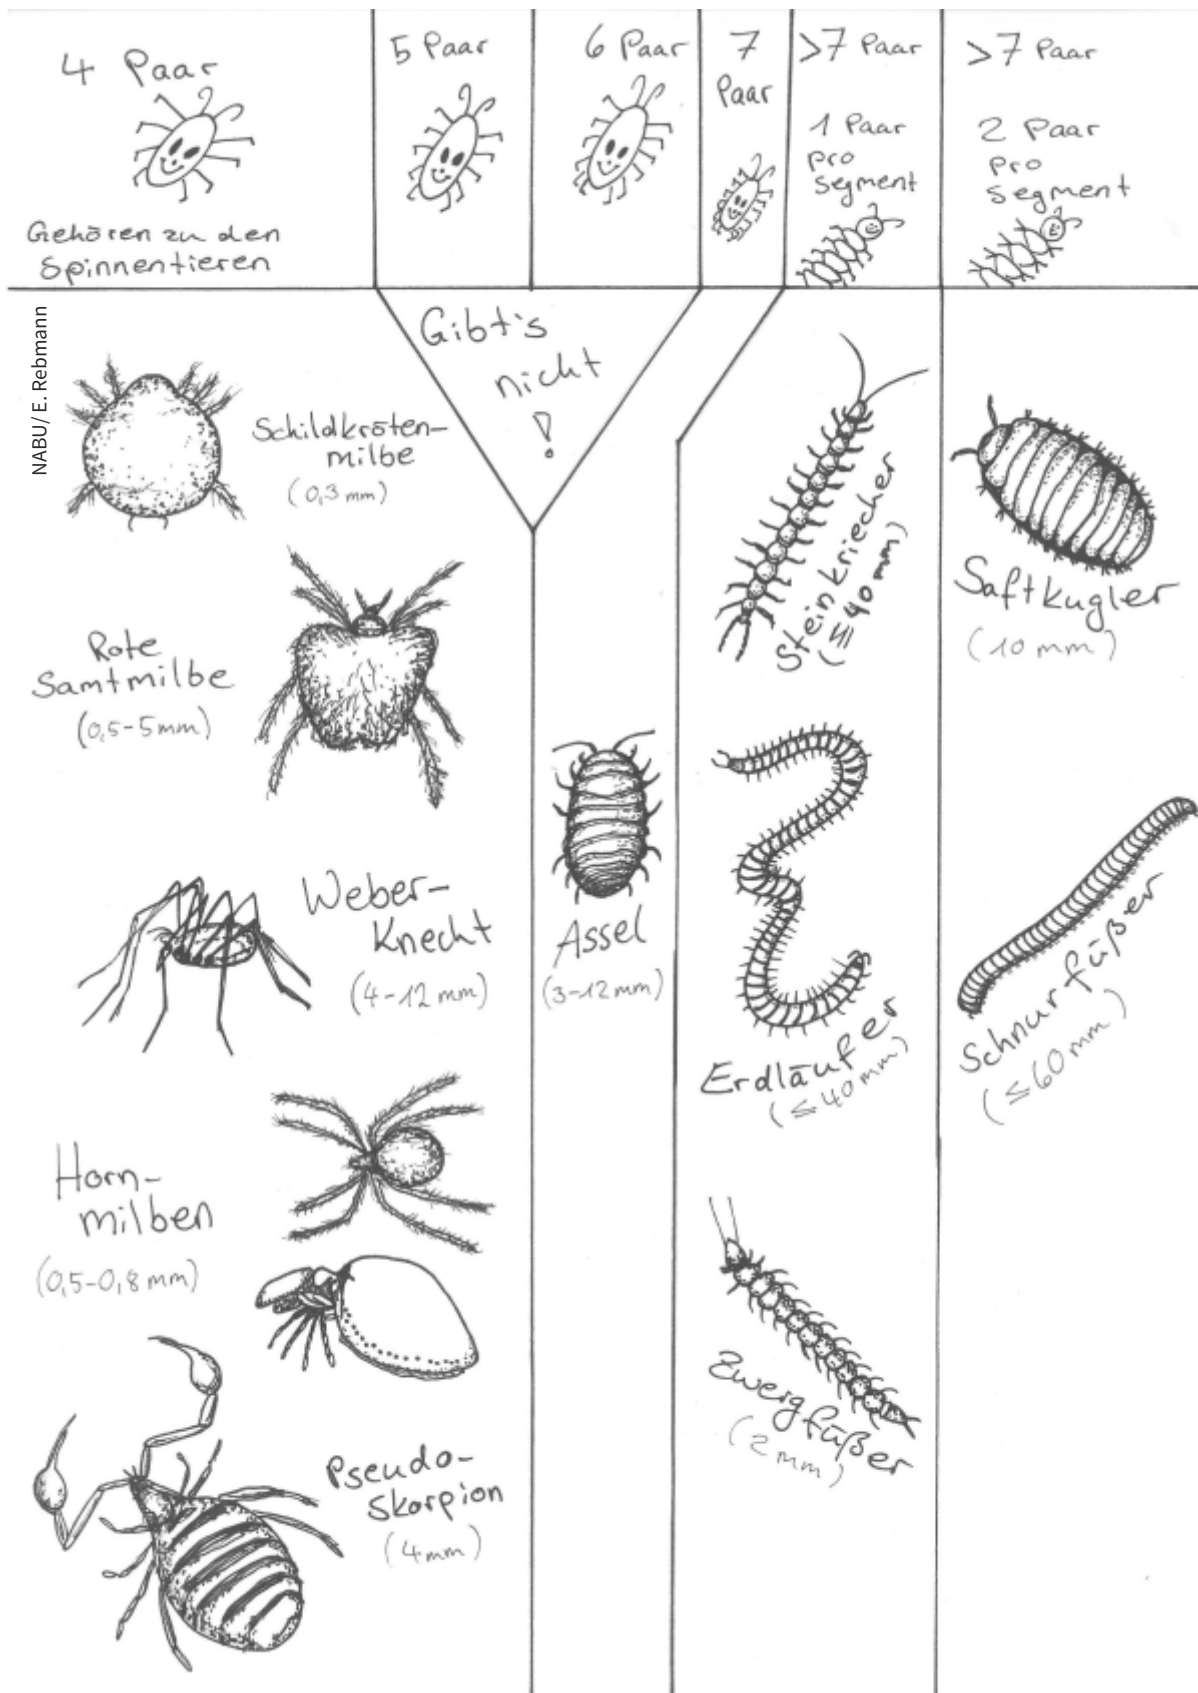 4 Paar
Gehören zu den
Spinnentieren
5 Paar
6 Paar
7
Paar
>7 Paar
1 Paar
pro
Segment
>7 Paar
2 Paar
pro
Segment
NABU/ E. Rebmann
Gibt's
nicht
!
Schildkröten-
milbe
(0,3 mm)
Rote
Samtmilbe
(0,5-5mm)
Weber-
Knecht
(4-12 mm)
Horn-
milben
(0,5-0,8 mm)
Pseudo-
Skorpion
(4mm)
Assel
(3-12mm)
Steinkriecher
(≤40 mm)
Erdläufer
(≤40mm)
Zwergfüßer
(2mm)
Saftkugler
(10 mm)
Schnurfüßer
(≤60mm)